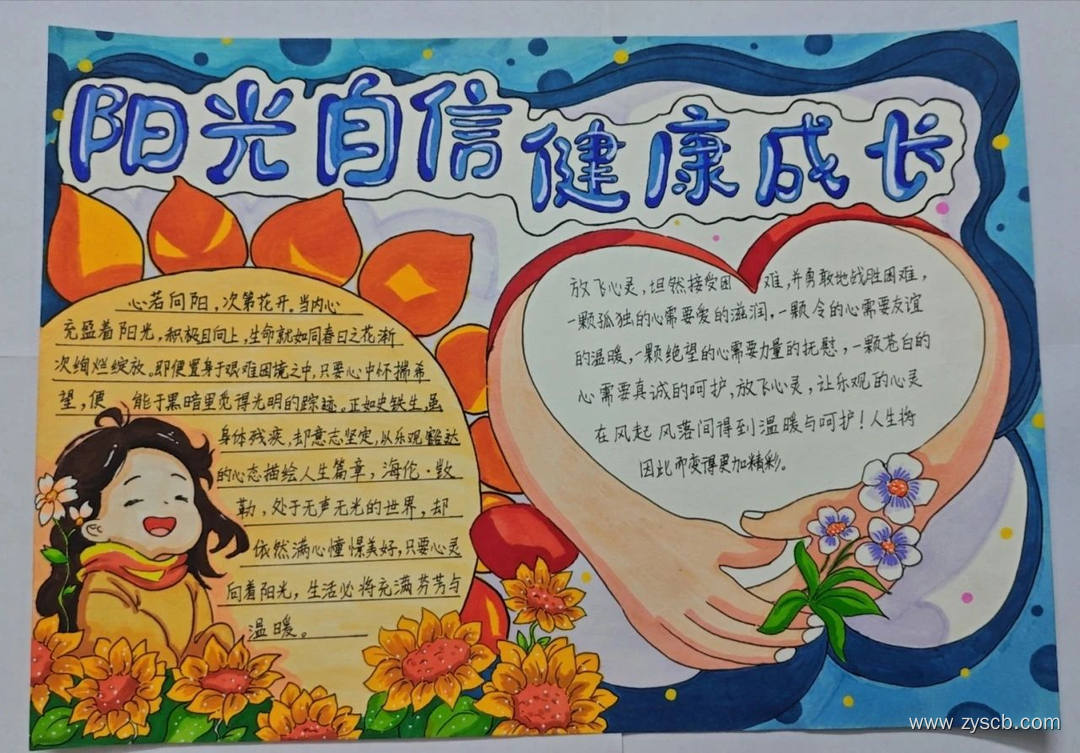 阳光自信健康成长
心若向阳，次第花开。当内心
充盈着阳光，积极且向上，生命就如同春日之花渐
次绚烂绽放。即便置身于艰难困境之中，只要心中怀揣希
望，便 能于黑暗里觅得光明的踪迹。正如史铁生，虽
身体残疾，却意志坚定，以乐观豁达
的心态描绘人生篇章，海伦·敳
勒，处于无声无光的世界，却
依然满心憧憬美好，只要心灵
向着阳光，生活必将充满芬芳与
温暖。
放飞心灵，坦然接受困 难，并勇敢地战胜困难，
一颗孤独的心需要爱的滋润，一颗 令的心需要友谊
的温暖，一颗绝望的心需要力量的抚慰，一颗苍白的
心需要真诚的呵护，放飞心灵，让乐观的心灵
在风起 风落间得到温暖与呵护！人生将
因此而变得更加精彩。
www.zyscb.com